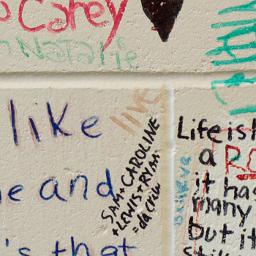 Carey
Natalie
like
LIVE
e and
's that
SAM + CAROLINE
+ LEWIS + RYAN
= da crew
Life is
a RO
it has
many
but it
still